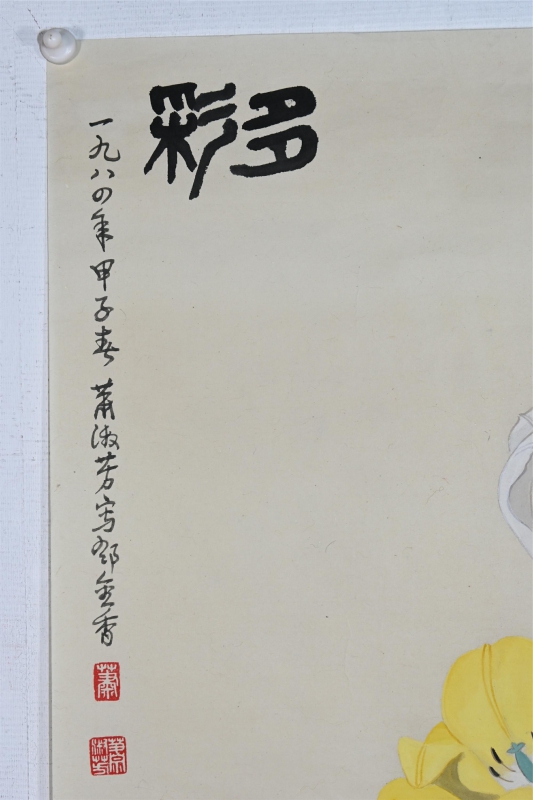 多彩
一九八四年甲子春 萧淑芳写郁金香
萧
淑芳